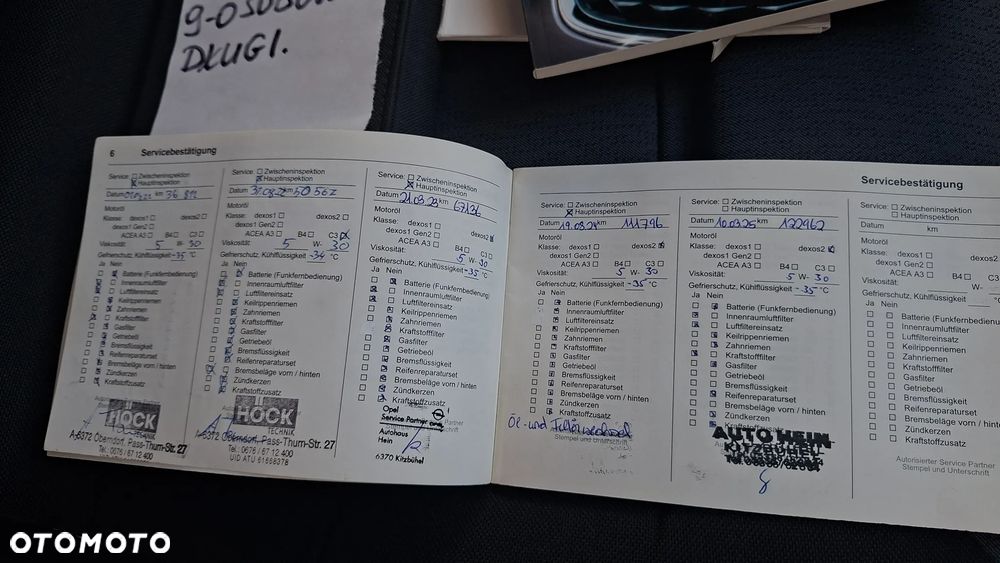 9-OSOBOW
DŁUGI.
6 Servicebestätigung
Service: Zwischeninspektion
Hauptinspektion
Datum km 36
Motoröl
Klasse: dexos1 dexos2
dexos1 Gen2
ACEA A3 B4 C3
Viskosität: 5 W- 30
Gefrierschutz, Kühlflüssigkeit -35 °C
Ja Nein
Batterie (Funkfernbedienung)
Innenraumluftfilter
Luftfiltereinsatz
Keilrippenriemen
Zahnriemen
Kraftstofffilter
Gasfilter
Getriebeöl
Bremsflüssigkeit
Reifenreparaturset
Bremsbeläge vorn / hinten
Zündkerzen
Kraftstoffzusatz
HÖCK
TECHNIK
A-6372 Oberndorf, Pass-Thurn-Str. 27
Tel.: 0676 / 67 12 400
Service: Zwischeninspektion
Hauptinspektion
Datum km 50 567
Motoröl
Klasse: dexos1 dexos2
dexos1 Gen2
ACEA A3 B4 C3
Viskosität: 5 W- 30
Gefrierschutz, Kühlflüssigkeit -34 °C
Ja Nein
Batterie (Funkfernbedienung)
Innenraumluftfilter
Luftfiltereinsatz
Keilrippenriemen
Zahnriemen
Kraftstofffilter
Gasfilter
Getriebeöl
Bremsflüssigkeit
Reifenreparaturset
Bremsbeläge vorn / hinten
Zündkerzen
Kraftstoffzusatz
HÖCK
TECHNIK
A-6372 Oberndorf, Pass-Thurn-Str. 27
Tel.: 0676 / 67 12 400
UID ATU 61568378
Service: Zwischeninspektion
Hauptinspektion
Datum 21.03.23 km 67136
Motoröl
Klasse: dexos1 dexos2
dexos1 Gen2
ACEA A3 B4 C3
Viskosität: 5 W- 30
Gefrierschutz, Kühlflüssigkeit -35 °C
Ja Nein
Batterie (Funkfernbedienung)
Innenraumluftfilter
Luftfiltereinsatz
Keilrippenriemen
Zahnriemen
Kraftstofffilter
Gasfilter
Getriebeöl
Bremsflüssigkeit
Reifenreparaturset
Bremsbeläge vorn / hinten
Zündkerzen
Kraftstoffzusatz
Opel
Service Partner
Autohaus
Hein
6370 Kitzbühel
Servicebestätigung
Service: Zwischeninspektion
Hauptinspektion
Datum 19.03.24 km 111796
Motoröl
Klasse: dexos1 dexos2
dexos1 Gen2
ACEA A3 B4 C3
Viskosität: 5 W- 30
Gefrierschutz, Kühlflüssigkeit -35 °C
Ja Nein
Batterie (Funkfernbedienung)
Innenraumluftfilter
Luftfiltereinsatz
Keilrippenriemen
Zahnriemen
Kraftstofffilter
Gasfilter
Getriebeöl
Bremsflüssigkeit
Reifenreparaturset
Bremsbeläge vorn / hinten
Zündkerzen
Kraftstoffzusatz
Öl- und Filterwechsel
Stempel und Unterschrift
Service: Zwischeninspektion
Hauptinspektion
Datum 10.03.25 km 122962
Motoröl
Klasse: dexos1 dexos2
dexos1 Gen2
ACEA A3 B4 C3
Viskosität: 5 W- 30
Gefrierschutz, Kühlflüssigkeit -35 °C
Ja Nein
Batterie (Funkfernbedienung)
Innenraumluftfilter
Luftfiltereinsatz
Keilrippenriemen
Zahnriemen
Kraftstofffilter
Gasfilter
Getriebeöl
Bremsflüssigkeit
Reifenreparaturset
Bremsbeläge vorn / hinten
Zündkerzen
Kraftstoffzusatz
AUTO HEIN
KITZBÜHEL
Service: Zwischeninspektion
Hauptinspektion
Datum km
Motoröl
Klasse: dexos1 dexos2
dexos1 Gen2
ACEA A3 B4 C3
Viskosität: W-
Gefrierschutz, Kühlflüssigkeit
Ja Nein
Batterie (Funkfernbedienung)
Innenraumluftfilter
Luftfiltereinsatz
Keilrippenriemen
Zahnriemen
Kraftstofffilter
Gasfilter
Getriebeöl
Bremsflüssigkeit
Reifenreparaturset
Bremsbeläge vorn / hinten
Zündkerzen
Kraftstoffzusatz
Autorisierter Service Partner
Stempel und Unterschrift
OTOMOTO